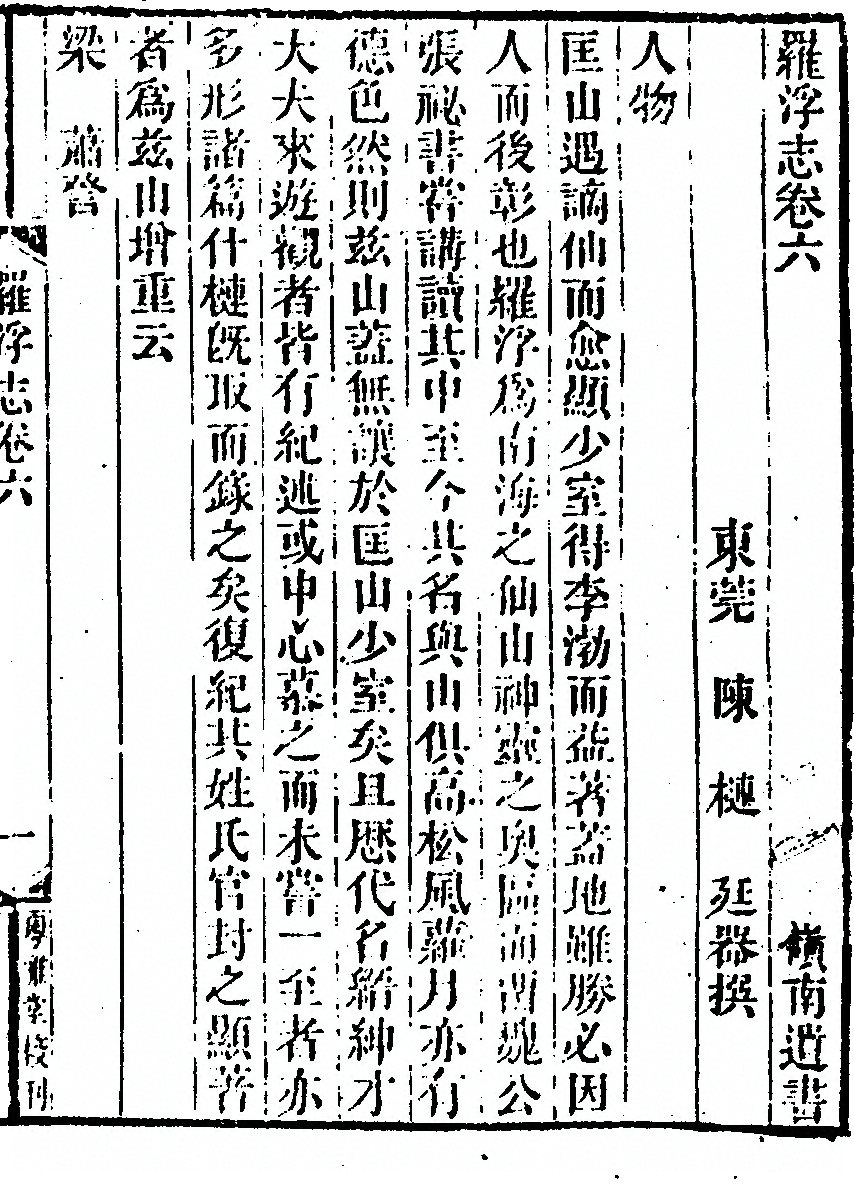 羅浮志卷六　嶺南遺書
東莞　陳　槤　廷器撰
人物
匡山遇謫仙而愈顯少室得李渤而益著蓋地雖勝必因
人而後彰也羅浮為南海之仙山神靈之奧區而曹魏公
張祕書嘗講讀其中至今其名與山俱高松風蘿月亦有
德色然則茲山蓋無讓於匡山少室矣且歷代名縉紳才
大夫來遊觀者皆有紀述或中心慕之而未嘗一至者亦
多形諸篇什槤既取而錄之矣復紀其姓氏官封之顯著
者為茲山增重云
梁　蕭詧
羅浮志卷六
一
粵雅堂校刊